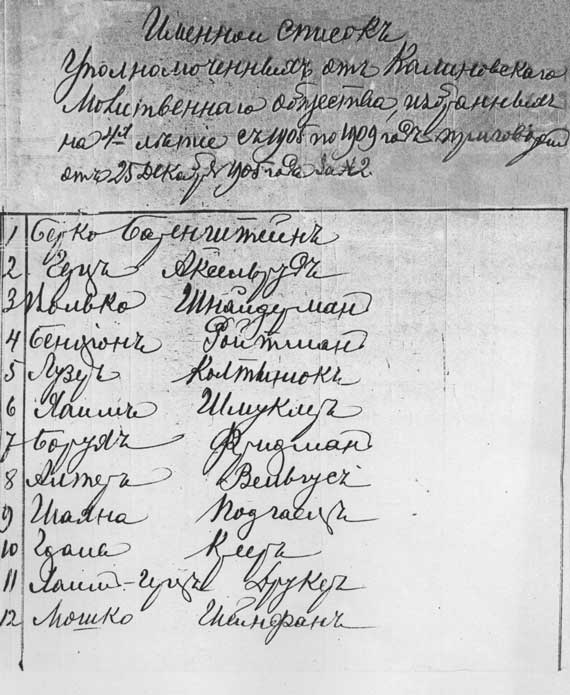 Именной списокъ
Уполномоченныхъ отъ Калиновскаго
Молитвеннаго общества, избранныхъ
на 4хъ лѣтіе съ 1905 по 1909 годъ
отъ 25 Декабря 1905 года за №2.
1 Берко Боренштейнъ
2 Герцъ Аксельрудъ
3 Іолько Шнайдерман
4 Бенціонъ Ройтман
5 Лузеръ Колтынюкъ
6 Хаимъ Шмуклеръ
7 Борухъ Фридман
8 Алтеръ Вельгусъ
9 Шаяна Подгаецъ
10 Гдаля Крееръ
11 Хаим-Герцъ Друкеръ
12 Мошко Шейнфанъ